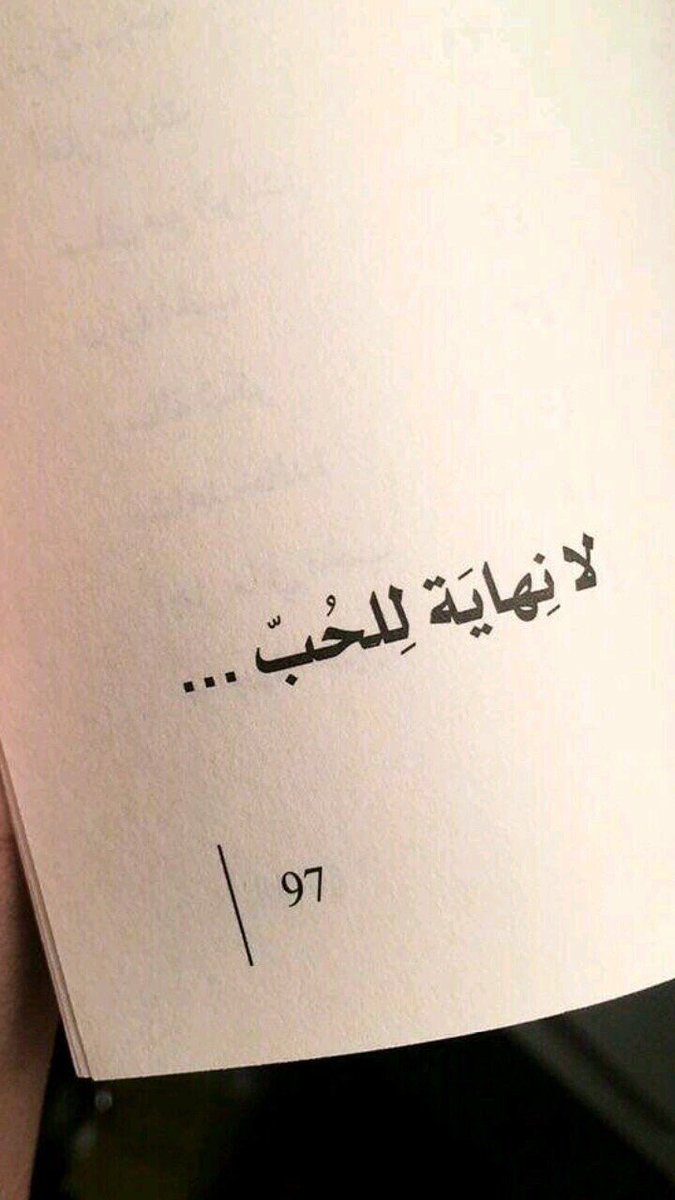 لا نِهايَة لِلحُبّ ...
97